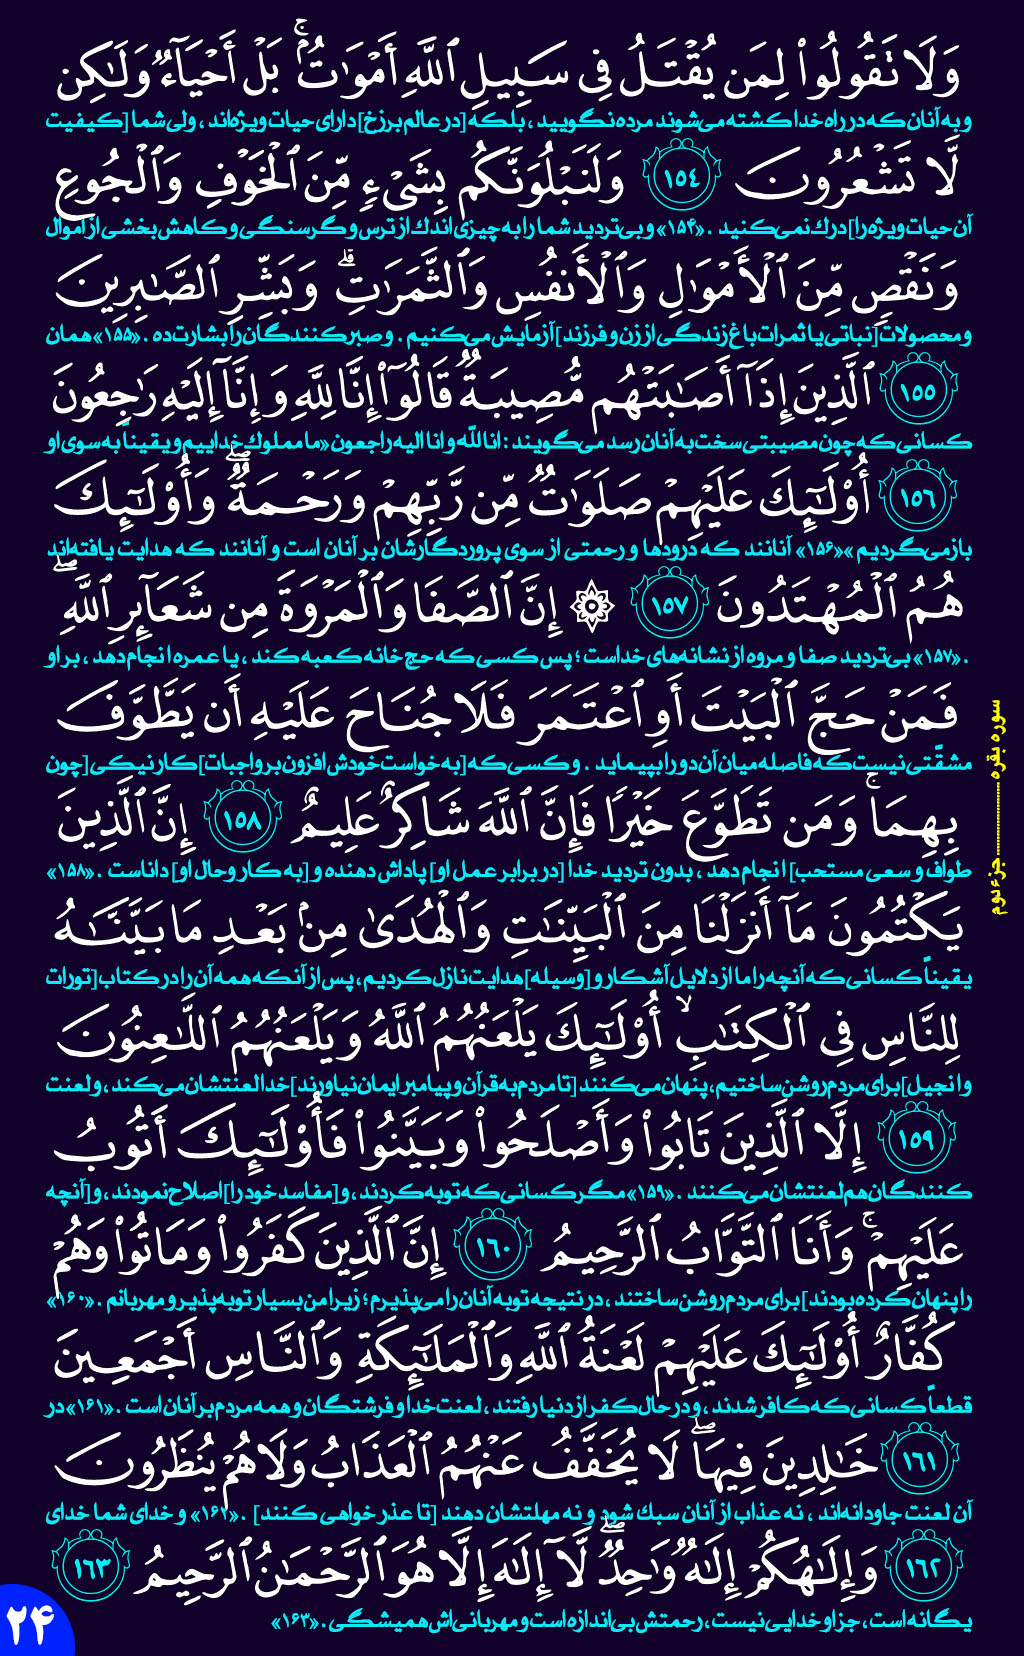 وَلَا تَقُولُوا۟ لِمَن يُقْتَلُ فِى سَبِيلِ ٱللَّهِ أَمْوَٰتٌۢ ۚ بَلْ أَحْيَآءٌ وَلَٰكِن
و به آنان که در راه خدا کشته می‌شوند مرده نگویید ، بلکه [در عالم برزخ] دارای حیات ویژه‌اند ، ولی شما [کیفیت
لَّا تَشْعُرُونَ ١٥٤ وَلَنَبْلُوَنَّكُم بِشَىْءٍ مِّنَ ٱلْخَوْفِ وَٱلْجُوعِ
آن حیات ویژه را] درک نمی‌کنید . «۱۵۴» و بی‌تردید شما را به چیزی اندک از ترس و گرسنگی و کاهش بخشی از اموال
وَنَقْصٍ مِّنَ ٱلْأَمْوَٰلِ وَٱلْأَنفُسِ وَٱلثَّمَرَٰتِ ۗ وَبَشِّرِ ٱلصَّٰبِرِينَ
و محصولات [نباتی یا ثمرات باغ زندگی از زن و فرزند] آزمایش می‌کنیم . و صبر کنندگان را بشارت ده . «۱۵۵» همان
١٥٥ ٱلَّذِينَ إِذَآ أَصَٰبَتْهُم مُّصِيبَةٌ قَالُوٓا۟ إِنَّا لِلَّهِ وَإِنَّآ إِلَيْهِ رَٰجِعُونَ
کسانی که چون مصیبتی سخت به آنان رسد می‌گویند : انا للّه و انا الیه راجعون «ما مملوک خداییم و یقیناً به سوی او
١٥٦ أُو۟لَٰٓئِكَ عَلَيْهِمْ صَلَوَٰتٌ مِّن رَّبِّهِمْ وَرَحْمَةٌ ۖ وَأُو۟لَٰٓئِكَ
بازمی‌گردیم »«۱۵۶» آنانند که درودها و رحمتی از سوی پروردگارشان بر آنان است و آنانند که هدایت یافته‌اند
هُمُ ٱلْمُهْتَدُونَ ١٥٧ ۞ إِنَّ ٱلصَّفَا وَٱلْمَرْوَةَ مِن شَعَآئِرِ ٱللَّهِ ۖ
. «۱۵۷» بی‌تردید صفا و مروه از نشانه‌های خداست ؛ پس کسی که حج خانه کعبه کند ، یا عمره انجام دهد ، بر او
فَمَنْ حَجَّ ٱلْبَيْتَ أَوِ ٱعْتَمَرَ فَلَا جُنَاحَ عَلَيْهِ أَن يَطَّوَّفَ
مشقّتی نیست که فاصله میان آن دو را بپیماید . و کسی که [به خواست خودش افزون بر واجبات] کار نیکی [چون
بِهِمَا ۚ وَمَن تَطَوَّعَ خَيْرًا فَإِنَّ ٱللَّهَ شَاكِرٌ عَلِيمٌ ١٥٨ إِنَّ ٱلَّذِينَ
طواف و سعی مستحب] انجام دهد ، بدون تردید خدا [در برابر عمل او] پاداش دهنده و [به کار و حال او] داناست . «۱۵۸»
يَكْتُمُونَ مَآ أَنزَلْنَا مِنَ ٱلْبَيِّنَٰتِ وَٱلْهُدَىٰ مِنۢ بَعْدِ مَا بَيَّنَّٰهُ
یقیناً کسانی که آنچه را ما از دلایل آشکار و [وسیله] هدایت نازل کردیم ، پس از آنکه همه آن را در کتاب [تورات
لِلنَّاسِ فِى ٱلْكِتَٰبِ ۙ أُو۟لَٰٓئِكَ يَلْعَنُهُمُ ٱللَّهُ وَيَلْعَنُهُمُ ٱللَّٰعِنُونَ
و انجیل] برای مردم روشن ساختیم ، پنهان می‌کنند [تا مردم به قرآن و پیامبر ایمان نیاورند] خدا لعنتشان می‌کند ، و لعنت
١٥٩ إِلَّا ٱلَّذِينَ تَابُوا۟ وَأَصْلَحُوا۟ وَبَيَّنُوا۟ فَأُو۟لَٰٓئِكَ أَتُوبُ
کنندگان هم لعنتشان می‌کنند . «۱۵۹» مگر کسانی که توبه کردند ، و [مفاسد خود را] اصلاح نمودند ، و [آنچه
عَلَيْهِمْ ۚ وَأَنَا ٱلتَّوَّابُ ٱلرَّحِيمُ ١٦٠ إِنَّ ٱلَّذِينَ كَفَرُوا۟ وَمَاتُوا۟ وَهُمْ
را پنهان کرده بودند] برای مردم روشن ساختند ، در نتیجه توبه آنان را می‌پذیرم ؛ زیرا من بسیار توبه‌پذیر و مهربانم . «۱۶۰»
كُفَّارٌ أُو۟لَٰٓئِكَ عَلَيْهِمْ لَعْنَةُ ٱللَّهِ وَٱلْمَلَٰٓئِكَةِ وَٱلنَّاسِ أَجْمَعِينَ
قطعاً کسانی که کافر شدند ، و در حال کفر از دنیا رفتند ، لعنت خدا و فرشتگان و همه مردم بر آنان است . «۱۶۱» در
١٦١ خَٰلِدِينَ فِيهَا ۖ لَا يُخَفَّفُ عَنْهُمُ ٱلْعَذَابُ وَلَا هُمْ يُنظَرُونَ
آن لعنت جاودانه‌اند ، نه عذاب از آنان سبک شود و نه مهلتشان دهند [تا عذر خواهی کنند] . «۱۶۲» و خدای شما خدای
١٦٢ وَإِلَٰهُكُمْ إِلَٰهٌ وَٰحِدٌ ۖ لَّآ إِلَٰهَ إِلَّا هُوَ ٱلرَّحْمَٰنُ ٱلرَّحِيمُ ١٦٣
یگانه است ، جز او خدایی نیست ، رحمتش بی‌اندازه است و مهربانی‌اش همیشگی . «۱۶۳»
سوره بقره ............ جزء دوم
۲۴